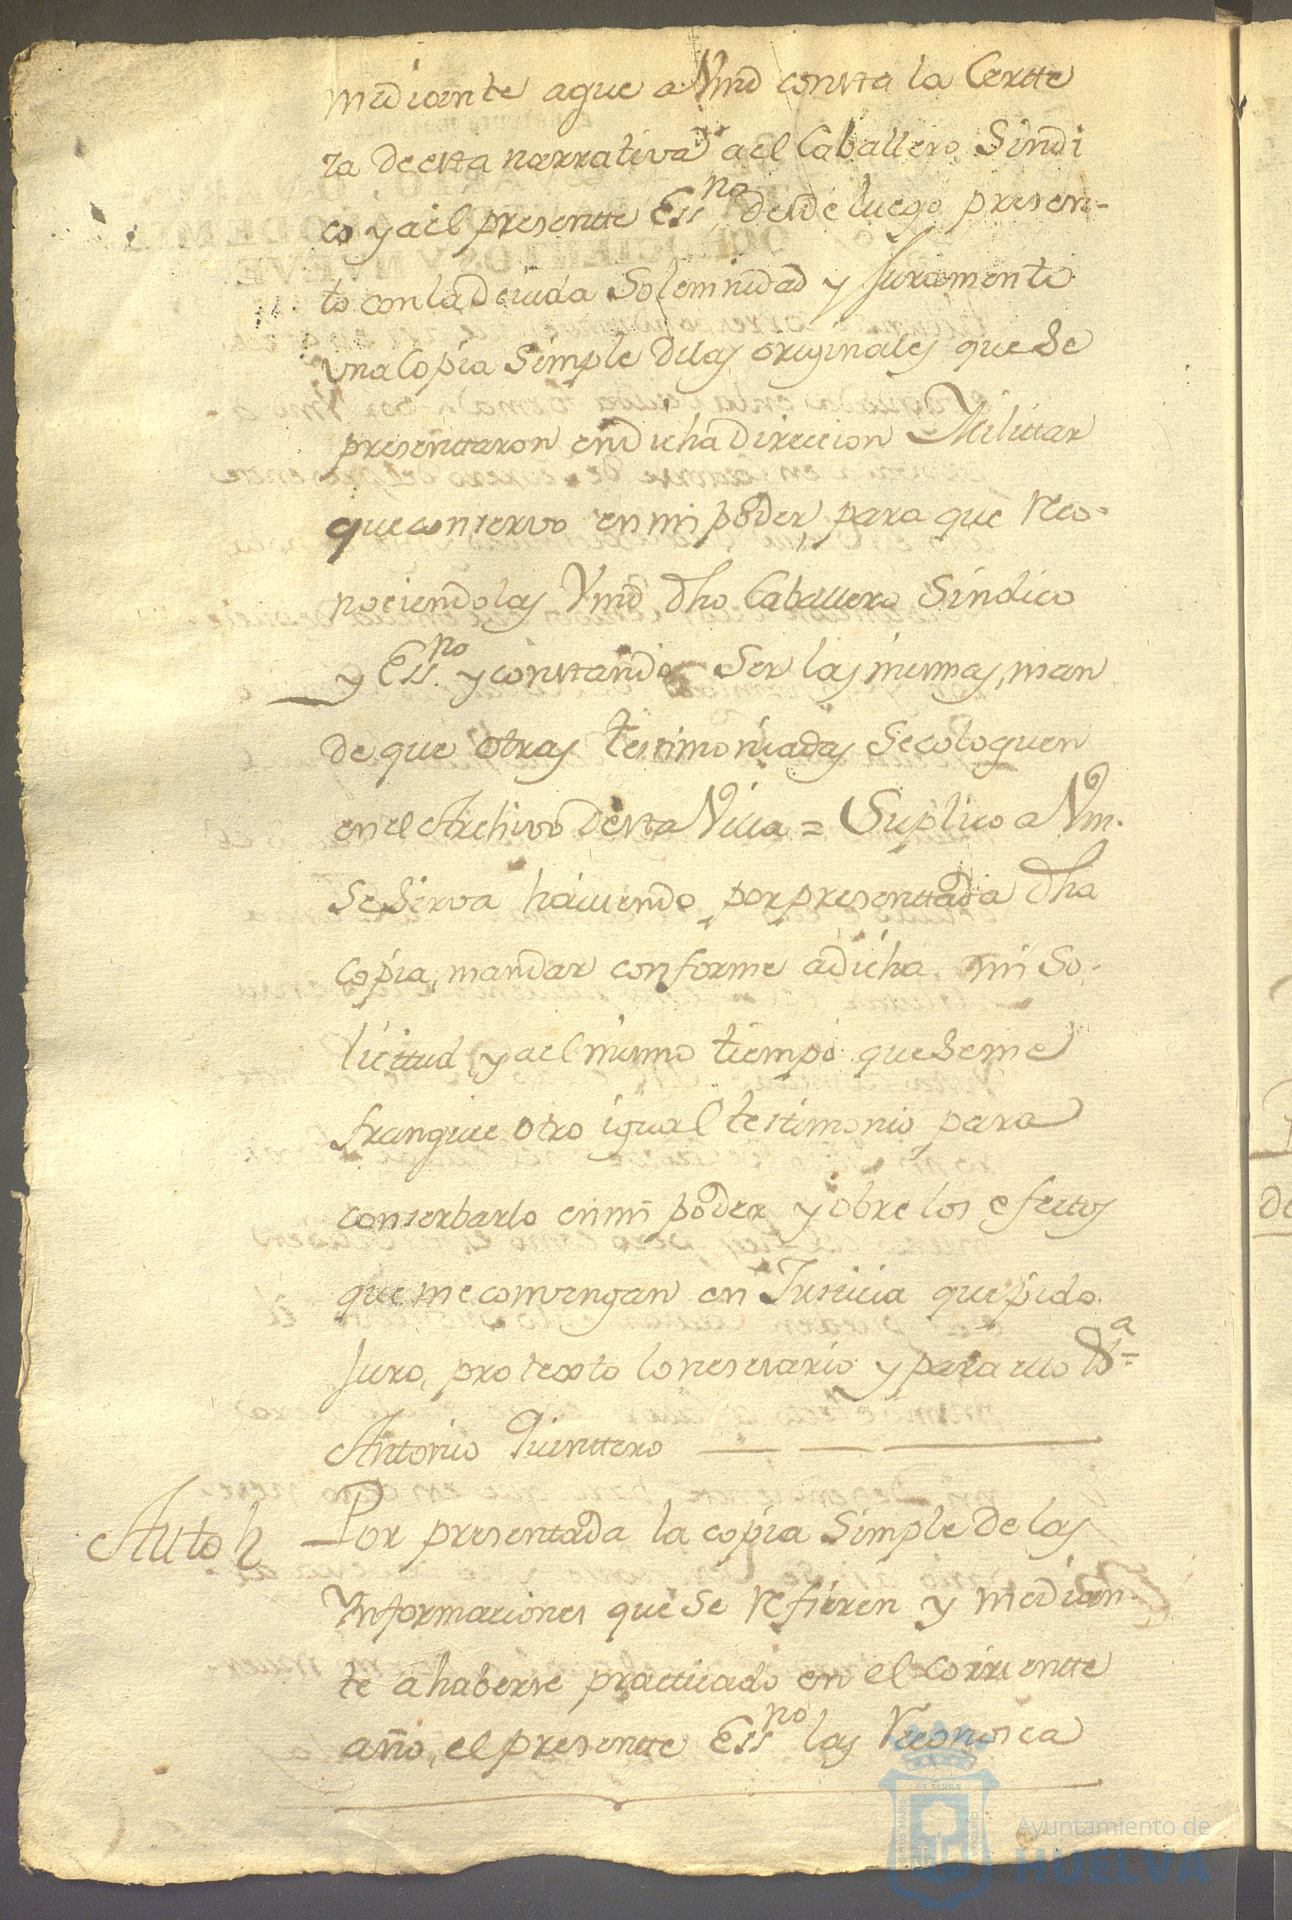 mediante aque a Vmd consta la Certte
za de esta narrativa a el Caballero Sindi
co y a el presentte Essno desde luego presen-
to con la deuida Solemnidad y Juramento
vna Copia Simple delas originales que se
presenttaron en dicha direccion Militar
que conservo en mi poder para que reco-
nociendolas Vmd dho Caballero Sindico
y Essno y constando Ser las mismas, man
de que otras testimoniadas Se coloquen
en el Archivo desta Villa = Suplico a Vm.
Se Sirva haviendo por presenttada dha
Copia, mandar conforme a dicha mi So-
licitud, y a el mismo tiempo que se me
franquee otro igual testimonio para
conserbarlo en mi poder y obre los efectos
que me convengan en Justicia que pido
Juro, protexto lo nesesario y para ello
Antonio Quinttero
Auto
Por presentada la copia Simple de las
Ynformaciones que se refieren y median-
te a haberse practicado en el corriente
año, el presentte Essno las reconosca
Ayuntamiento de
HUELVA